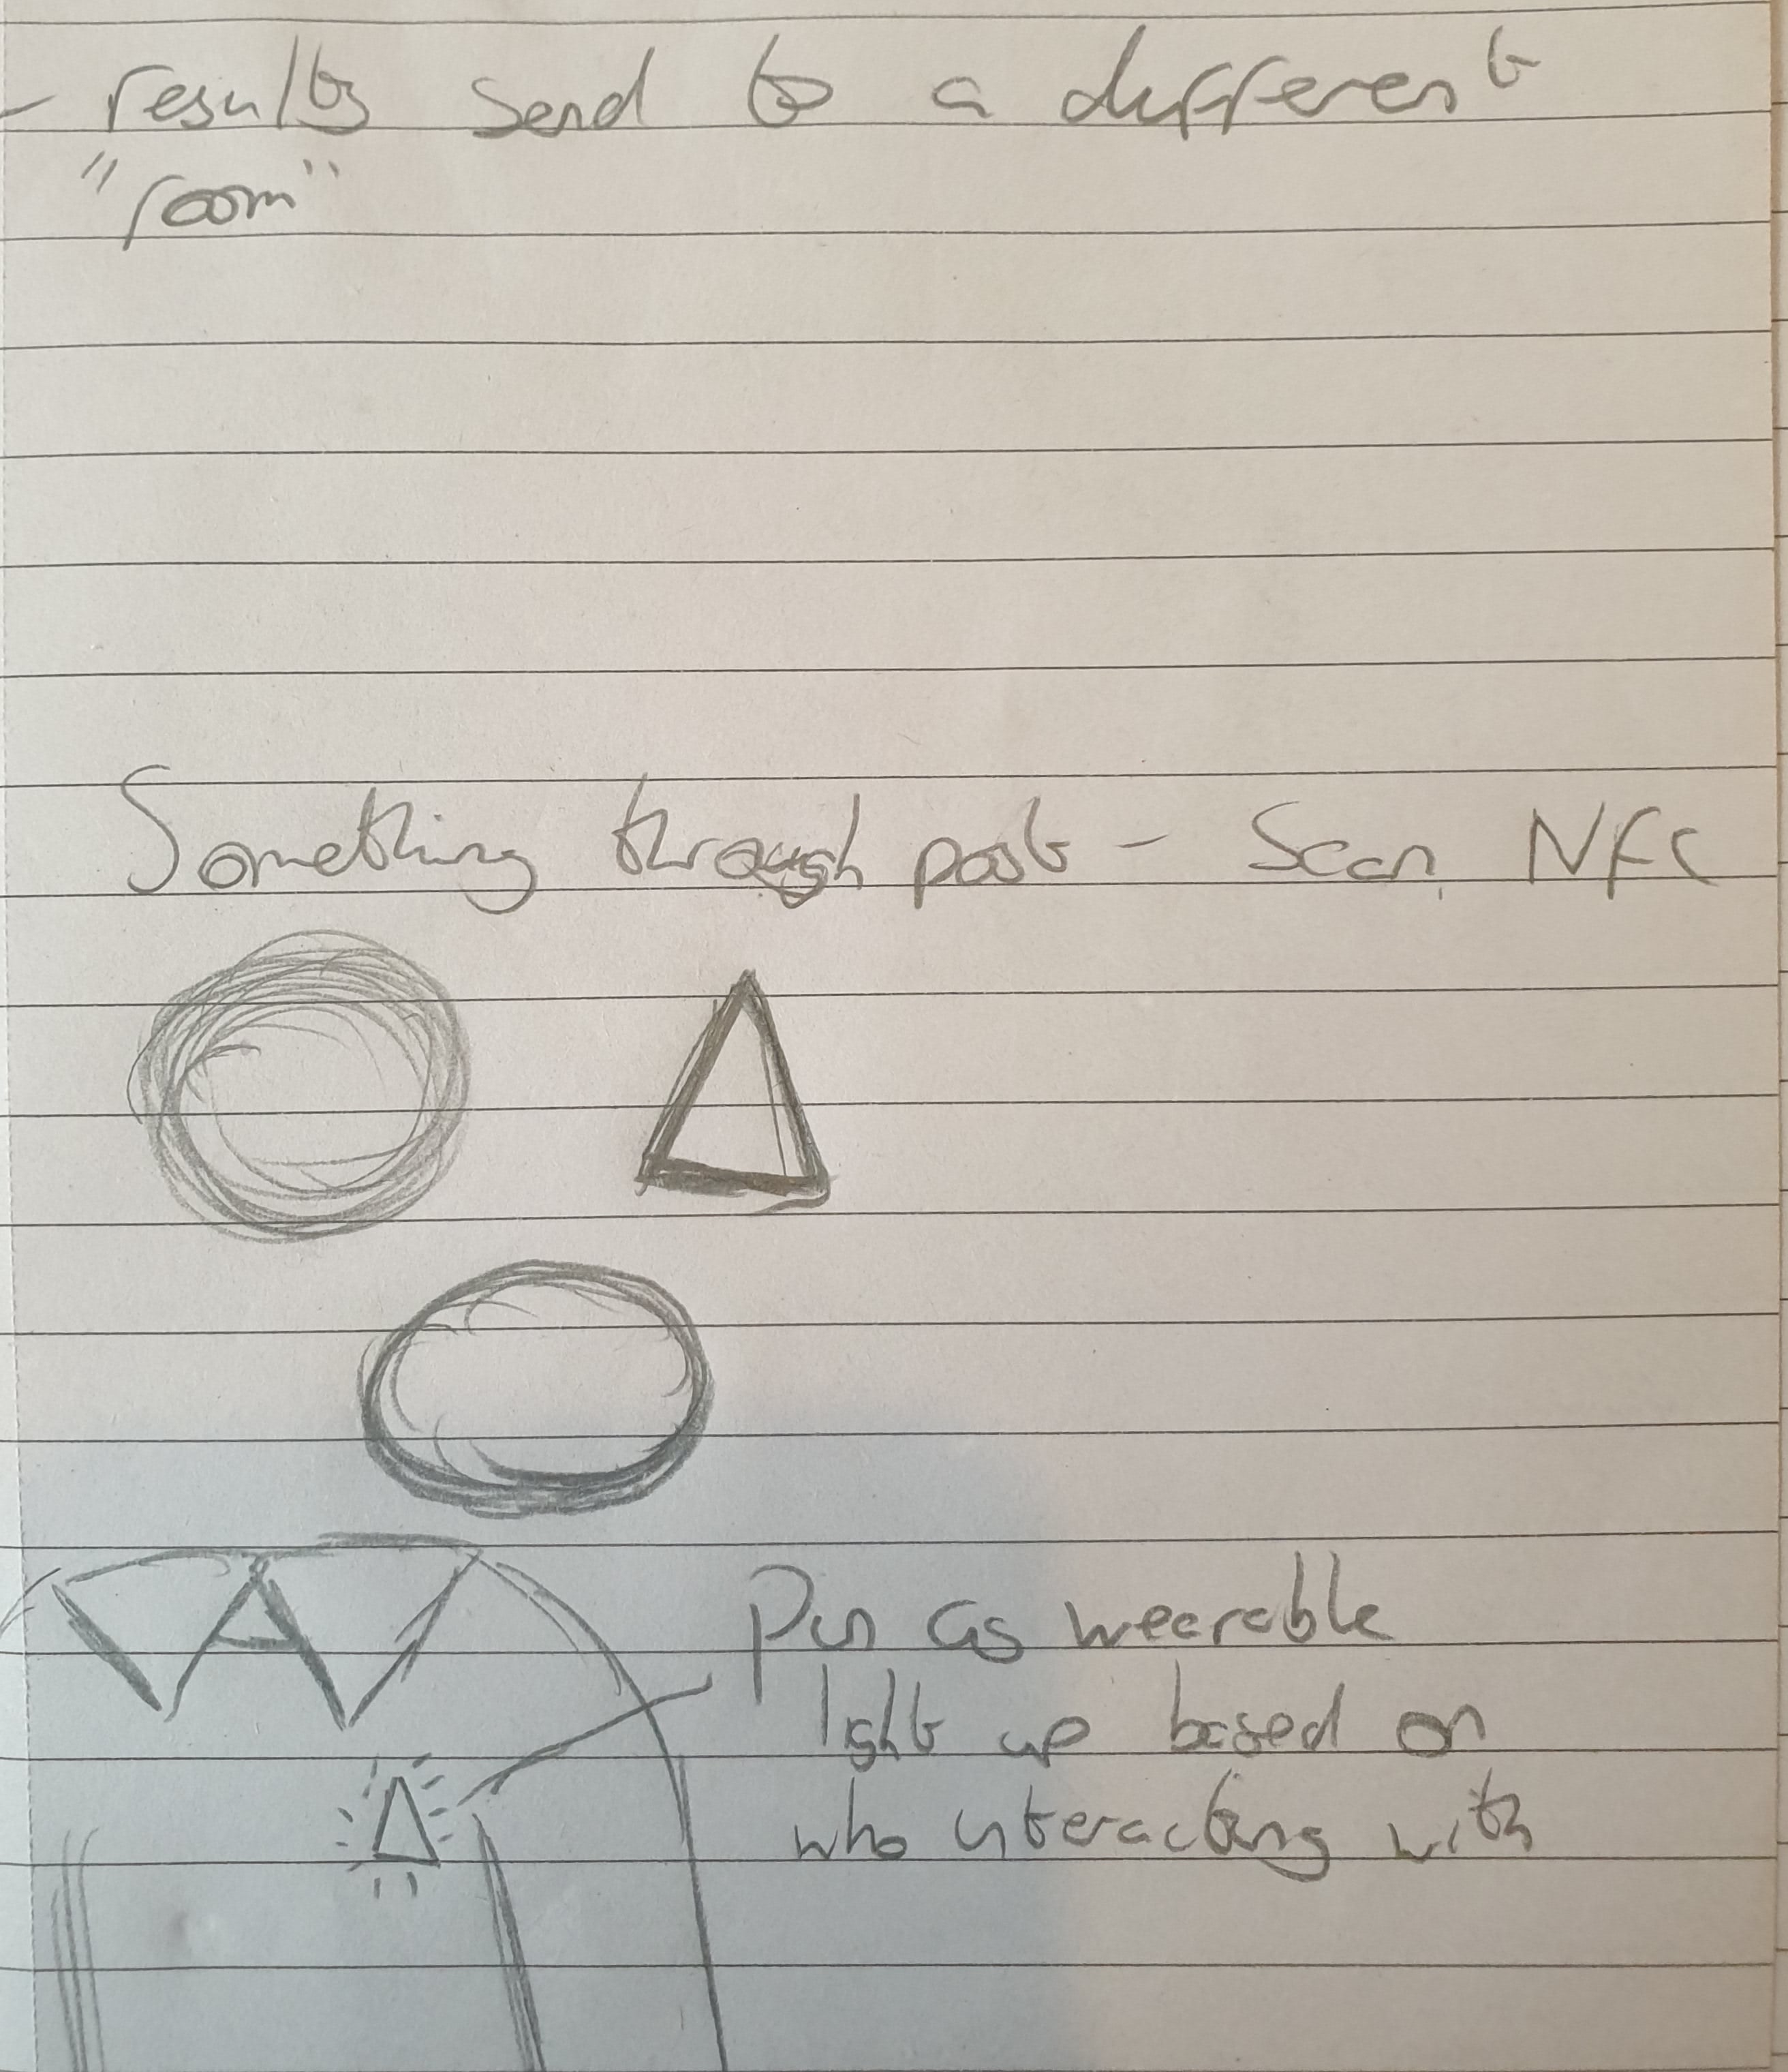 - results send to a different
"room"
Something through post - Scan NFC
Pin as wearable
light up based on
who interacting with